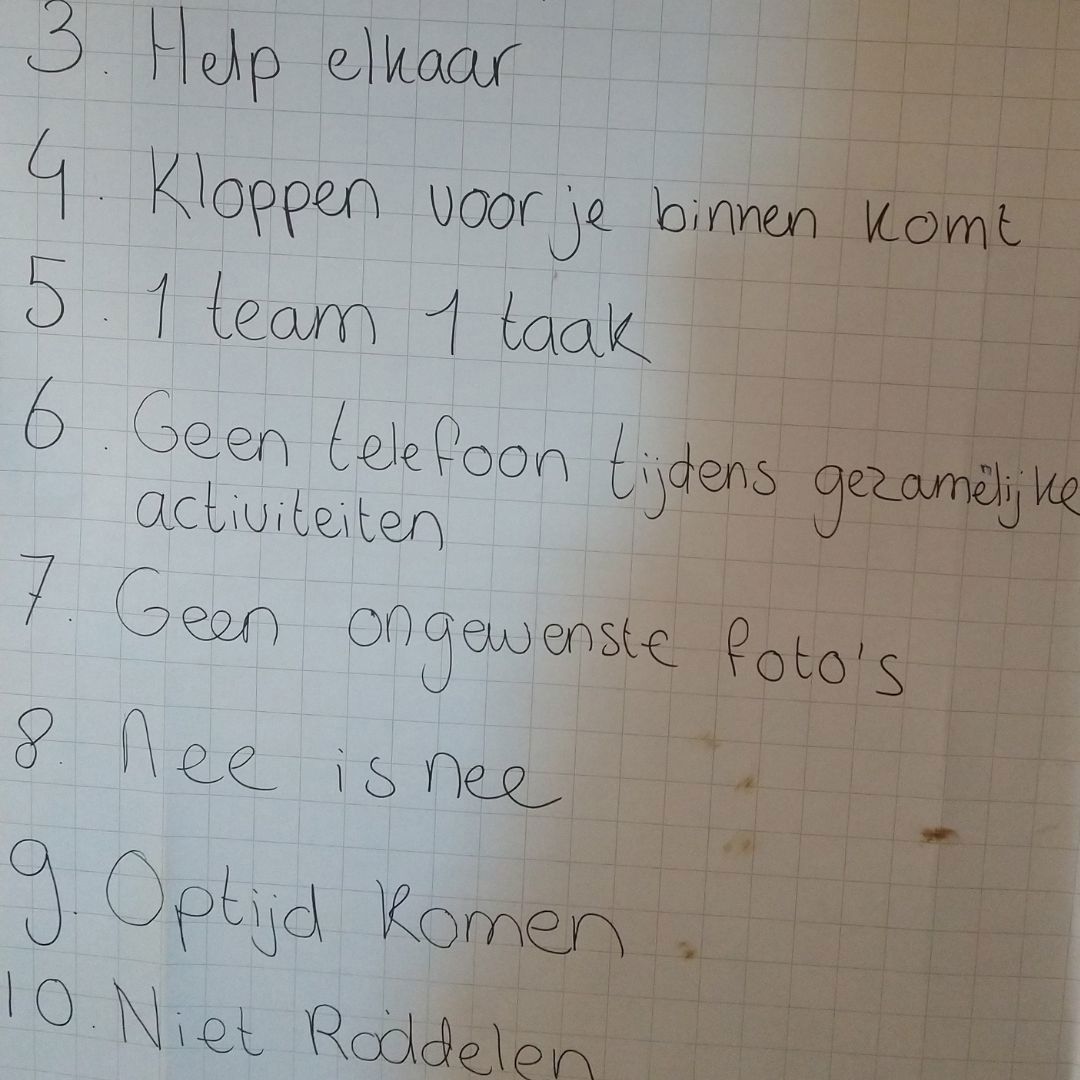 3. Help elkaar
4. Kloppen voor je binnen komt
5. 1 team 1 taak
6. Geen telefoon tijdens gezamelijke
activiteiten
7. Geen ongewenste foto's
8. Nee is nee
9. Optijd komen
10. Niet Roddelen